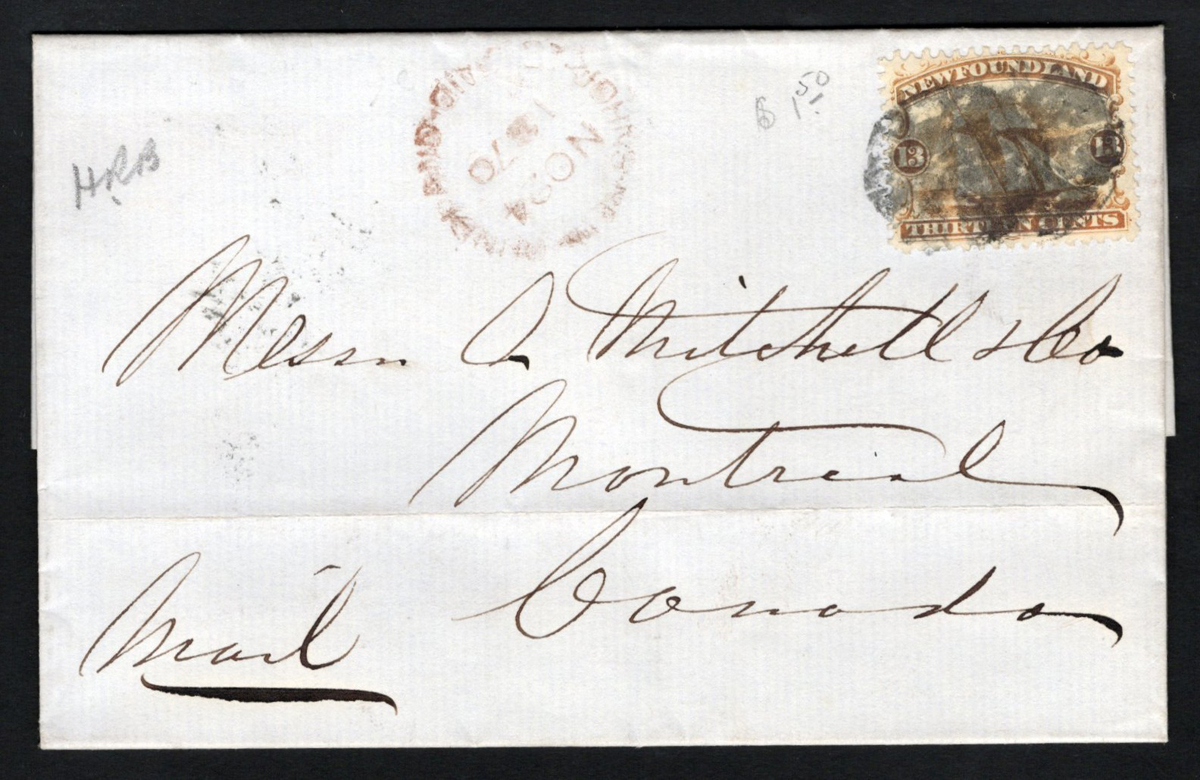 HRB
$1.50
NEWFOUNDLAND
13 13
THIRTEEN CENTS
PAID
ST. JOHN'S
NO 24
1870
Messrs A Mitchell & Co
Montreal
Canada
Mail